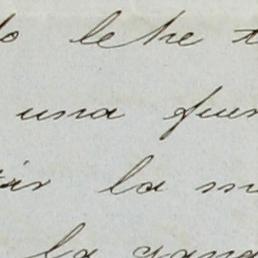 lo lehe t
una fun
tir la m
la gana